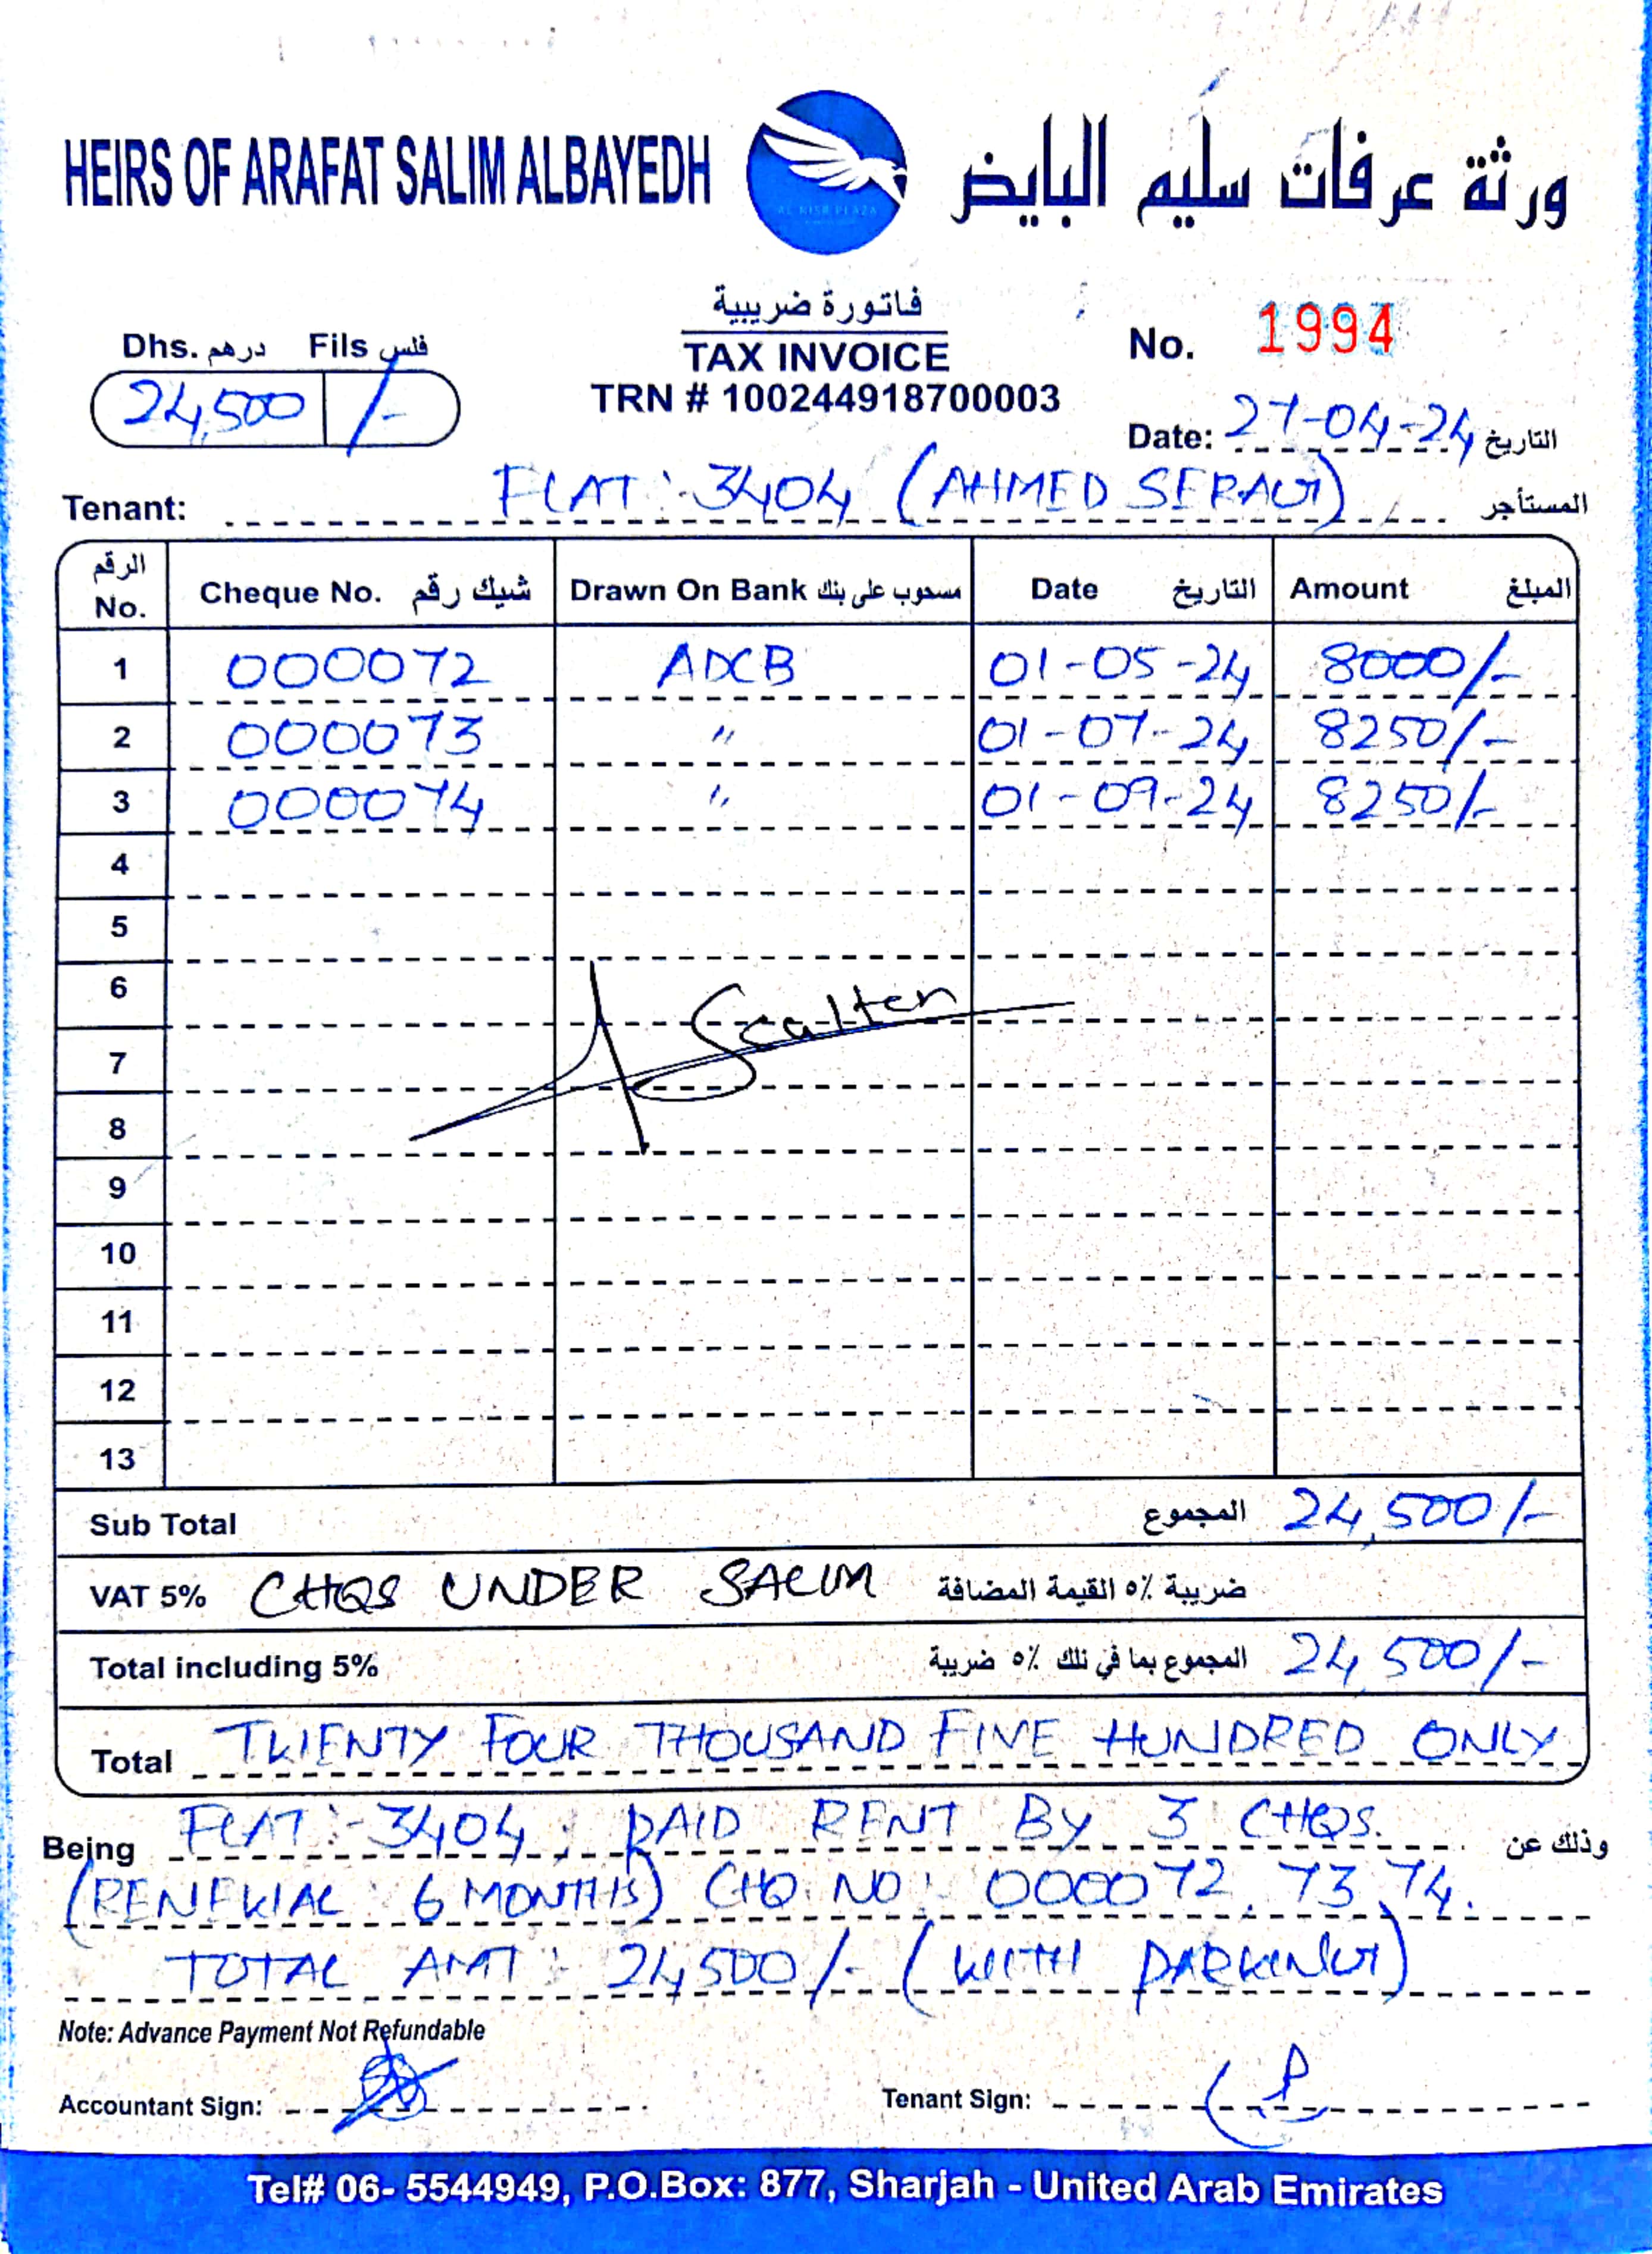 HEIRS OF ARAFAT SALIM ALBAYEDH
AL NISR PLAZA
ورثة عرفات سليم البايض
فاتورة ضريبية
TAX INVOICE
TRN # 100244918700003
Dhs. درهم Fils فلس
24,500 /-
No. 1994
Date: 27-04-24 التاريخ
Tenant: FLAT:-3404 (AHMED SERAG) المستأجر
الرقم No. Cheque No. شيك رقم Drawn On Bank مسحوب على بنك Date التاريخ Amount المبلغ
1 000072 ADCB 01-05-24 8000/-
2 000073 " 01-07-24 8250/-
3 000074 " 01-09-24 8250/-
4
5
6
7
8
9
10
11
12
13
Sub Total المجموع 24,500/-
VAT 5% CHQS UNDER SALIM ضريبة ٥٪ القيمة المضافة
Total including 5% المجموع بما في ذلك ٥٪ ضريبة 24,500/-
Total TWENTY FOUR THOUSAND FIVE HUNDRED ONLY
Being FLAT:-3404, PAID RENT BY 3 CHQS. وذلك عن
(RENEWAL: 6 MONTHS) CHQ. NO: 000072, 73, 74.
TOTAL AMT: 24,500/- (WITH PARKING)
Note: Advance Payment Not Refundable
Accountant Sign:
Tenant Sign:
Tel# 06- 5544949, P.O.Box: 877, Sharjah - United Arab Emirates